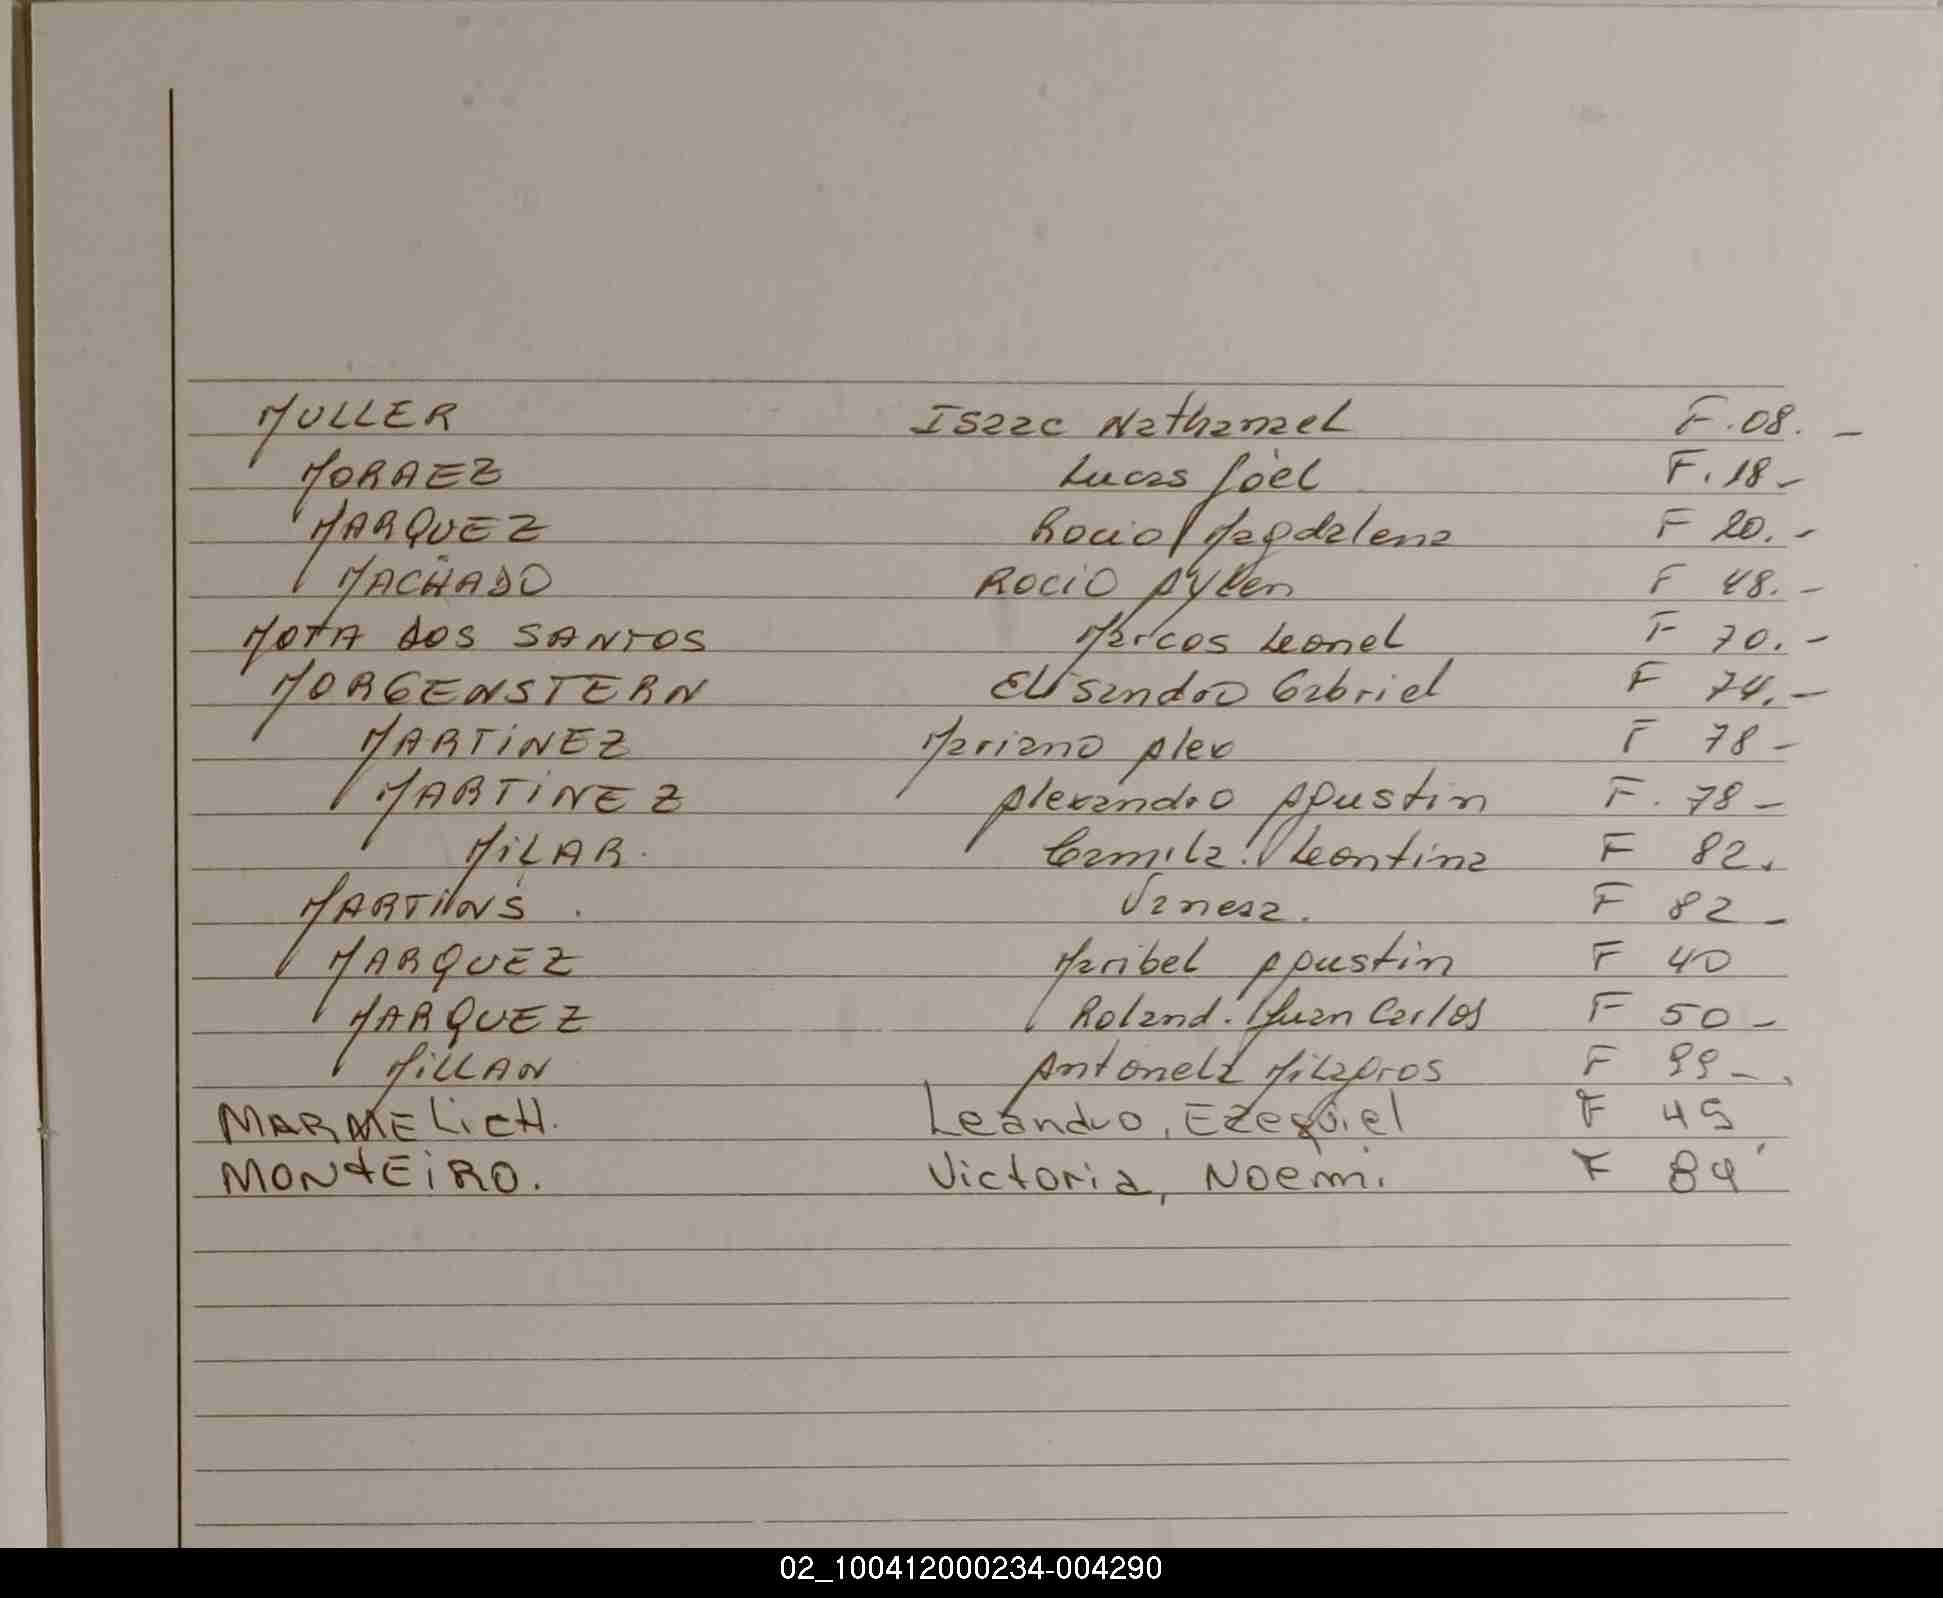 MULLER Isaac Nathanael F. 08. -
MORAEZ Lucas Joel F. 18 -
MARQUEZ Rocio Magdalena F 20. -
MACHADO ROCIO Aylen F 48. -
MOTA DOS SANTOS Marcos Leonel F 70. -
MORGENSTERN Elisandro Gabriel F 74. -
MARTINEZ Mariano Alex F 78 -
MARTINEZ Alexandro Agustin F. 78 -
MILAR. Camila. Leontina F 82.
MARTINS. Vanesa. F 82 -
MARQUEZ Maribel Agustin F 40
MARQUEZ Roland. Juan Carlos F 50 -
MILLAN Antonela Milagros F 99 -.
MARMELICH. Leandro, Ezequiel F 49
MONTEIRO. Victoria, Noemi. F 84
02_100412000234-004290